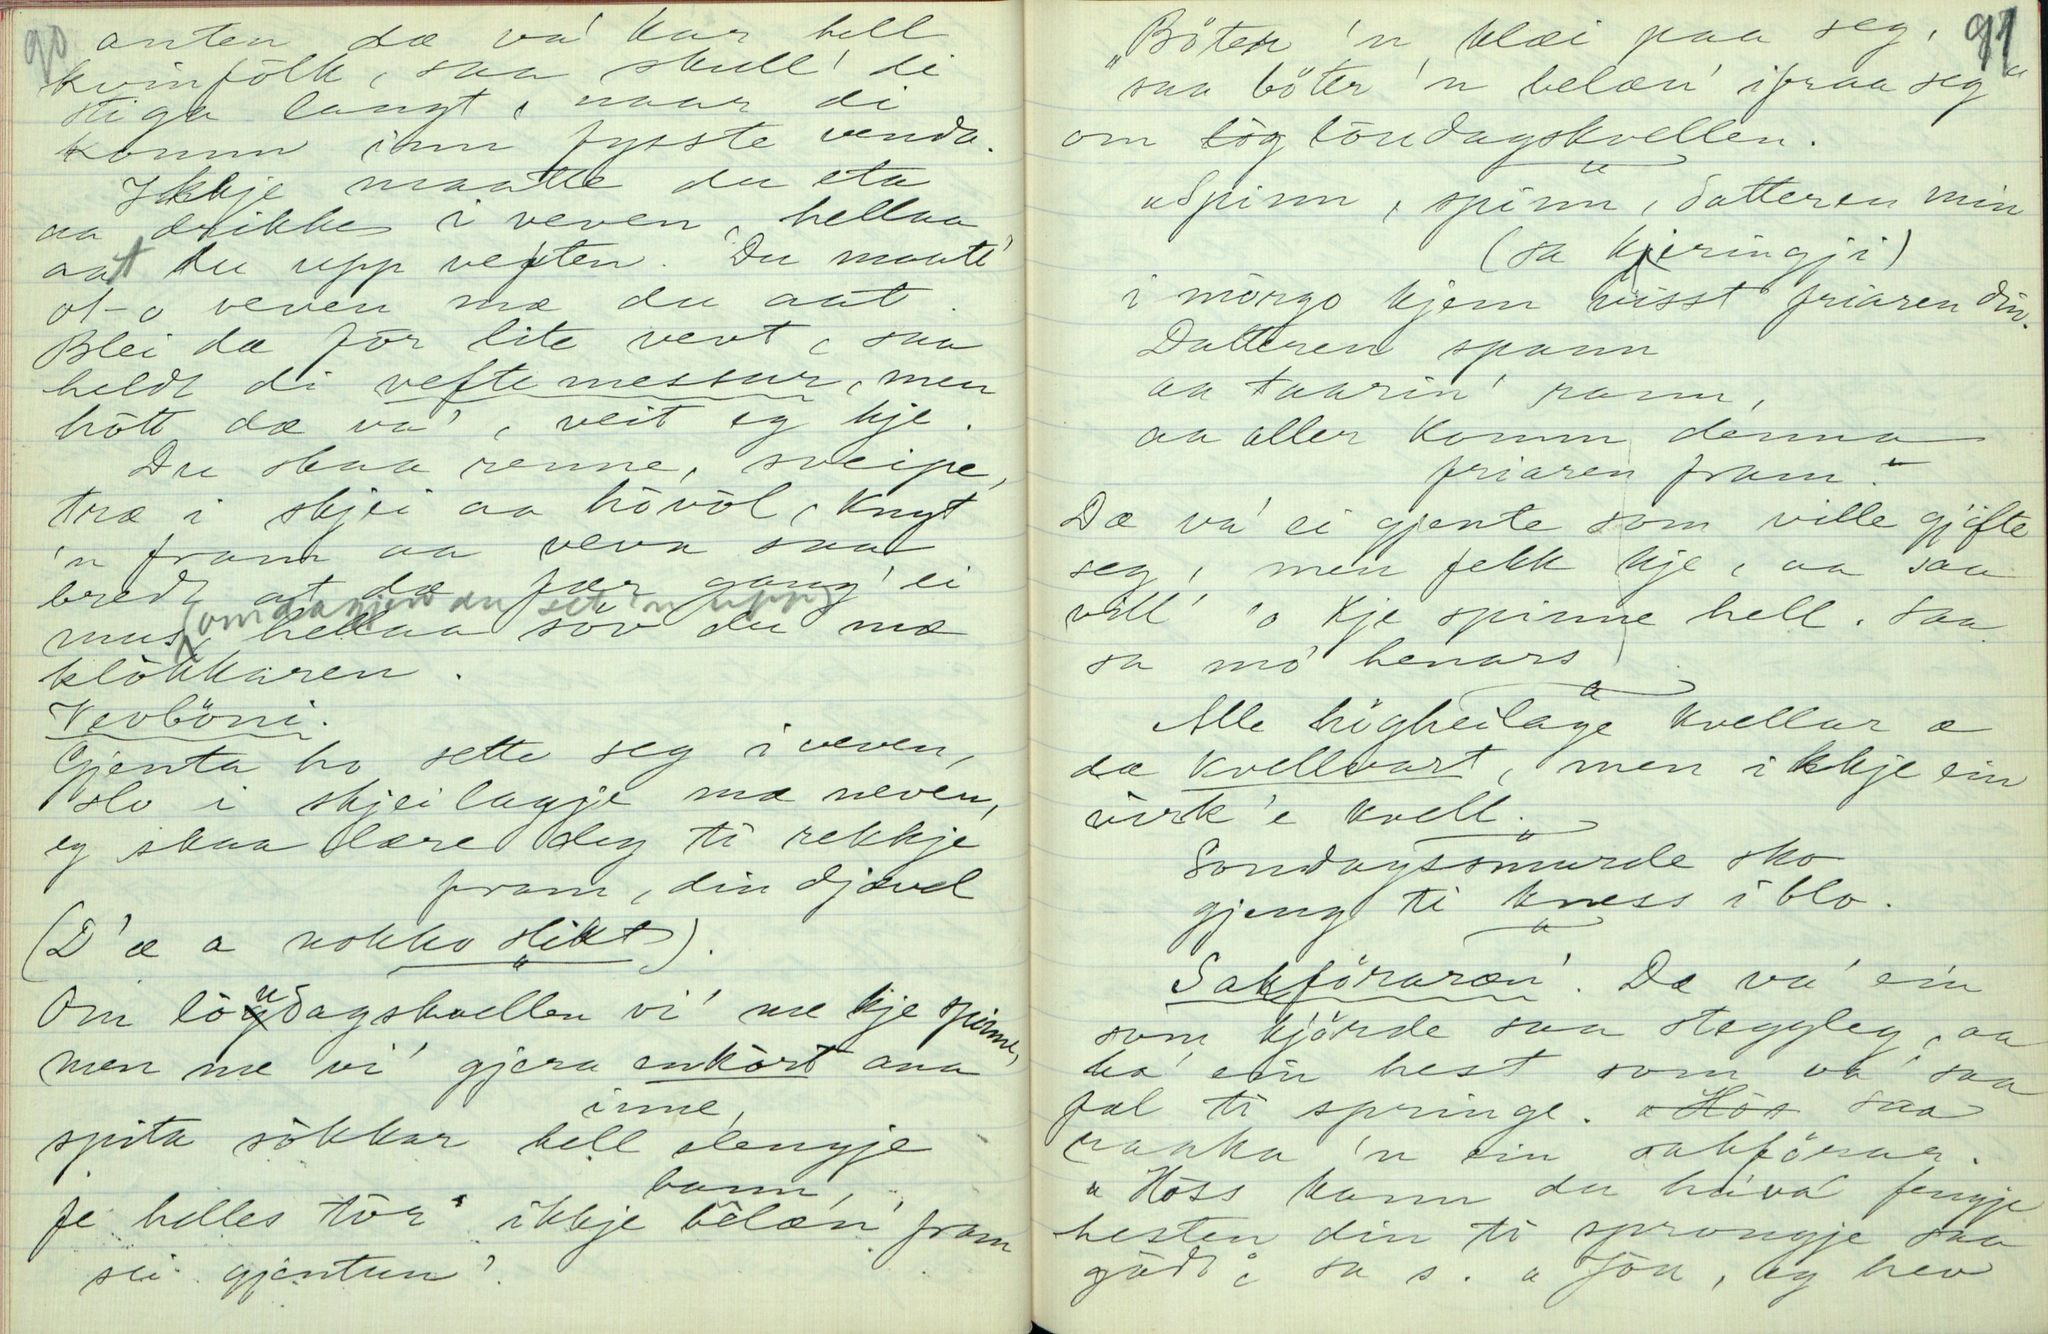 90
anten dæ va' kar hell
kvinfôlk, saa skull' di
stiga langt, naar di
komm inn fysste venda.
Ikkje maatte du eta
aa drikke i veven, hellaa
aat du upp veften. Du maatt'
ot-o veven mæ du aat.
Blei dæ fôr lite vevt, saa
heldt di veftemessur, men
hôtt dæ va', veit eg kje.
Du skaa renne, sveipe,
træ i skjei aa hôvôl, knyt
'n fram aa veva saa
bredt at dæ fær gang' ei
(om dagjen du set'n upp)
mus, hellaa sôv du mæ
klôkkaren.
Vevböni.
Gjenta ho sette seg i veven,
slo i skjeilagje mæ neven,
eg skaa lære deg ti rekkje
fram, din djævel
(D'æ a nokko slikt).
Om lôundagskvellen vi' me kje spinne,
men me vi' gjera enkôrt ana
inne,
spita sôkkar hell slengje
bann,
fe helles tôr' ikkje bêlæn' fram
sei gjentun'.
91
"Böter 'n klæi paa seg,
saa böter 'n belæn' ifraa seg"
om lôg lôundagskvellen.
"Spinn, spinn, datteren min
(sa kjeringji)
i môrgo kjem visst friaren din.
Datteren spann
aa taarin' rann,
aa aller komm denna
friaren fram."
Dæ va' ei gjente som ville gjifte
seg, men fekk kje, aa saa
vill' 'o kje spinne hell. Saa
sa mo' henars
Alle högheilage kvellar æ
dæ kvellvart, men ikkje ein
virk'e kvell.
Sondagssmurde sko
gjeng ti kness i blo.
Sakföraren'. Dæ va' ein
som kjörde saa steggleg, aa
ha' ein hest som va' saa
fal ti springe. "Hôs saa
raaka 'n ein sakförar.
"Hôss kann du ha'va' fengje
hesten din ti sprongje saa
gôdt, sa s. "Jôu, eg hev